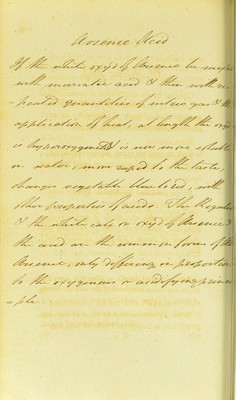 Arsenic Acid
If the white oxyd of Arsenic be mixed
with muriatic acid & then with re-
-peated quantities of nitric gas & the
application of heat, at length the oxyd
is hyperoxygenated is now more soluble
in water, more rapid to the taste,
changes vegetable blue to red, with
other properties of acids. The Regulus
& the white calx or oxyd of Arsenic &
the acid are the common forms of the
Arsenic, only differing in proportion
to the oxygenous or acidifying princi-
-ple.